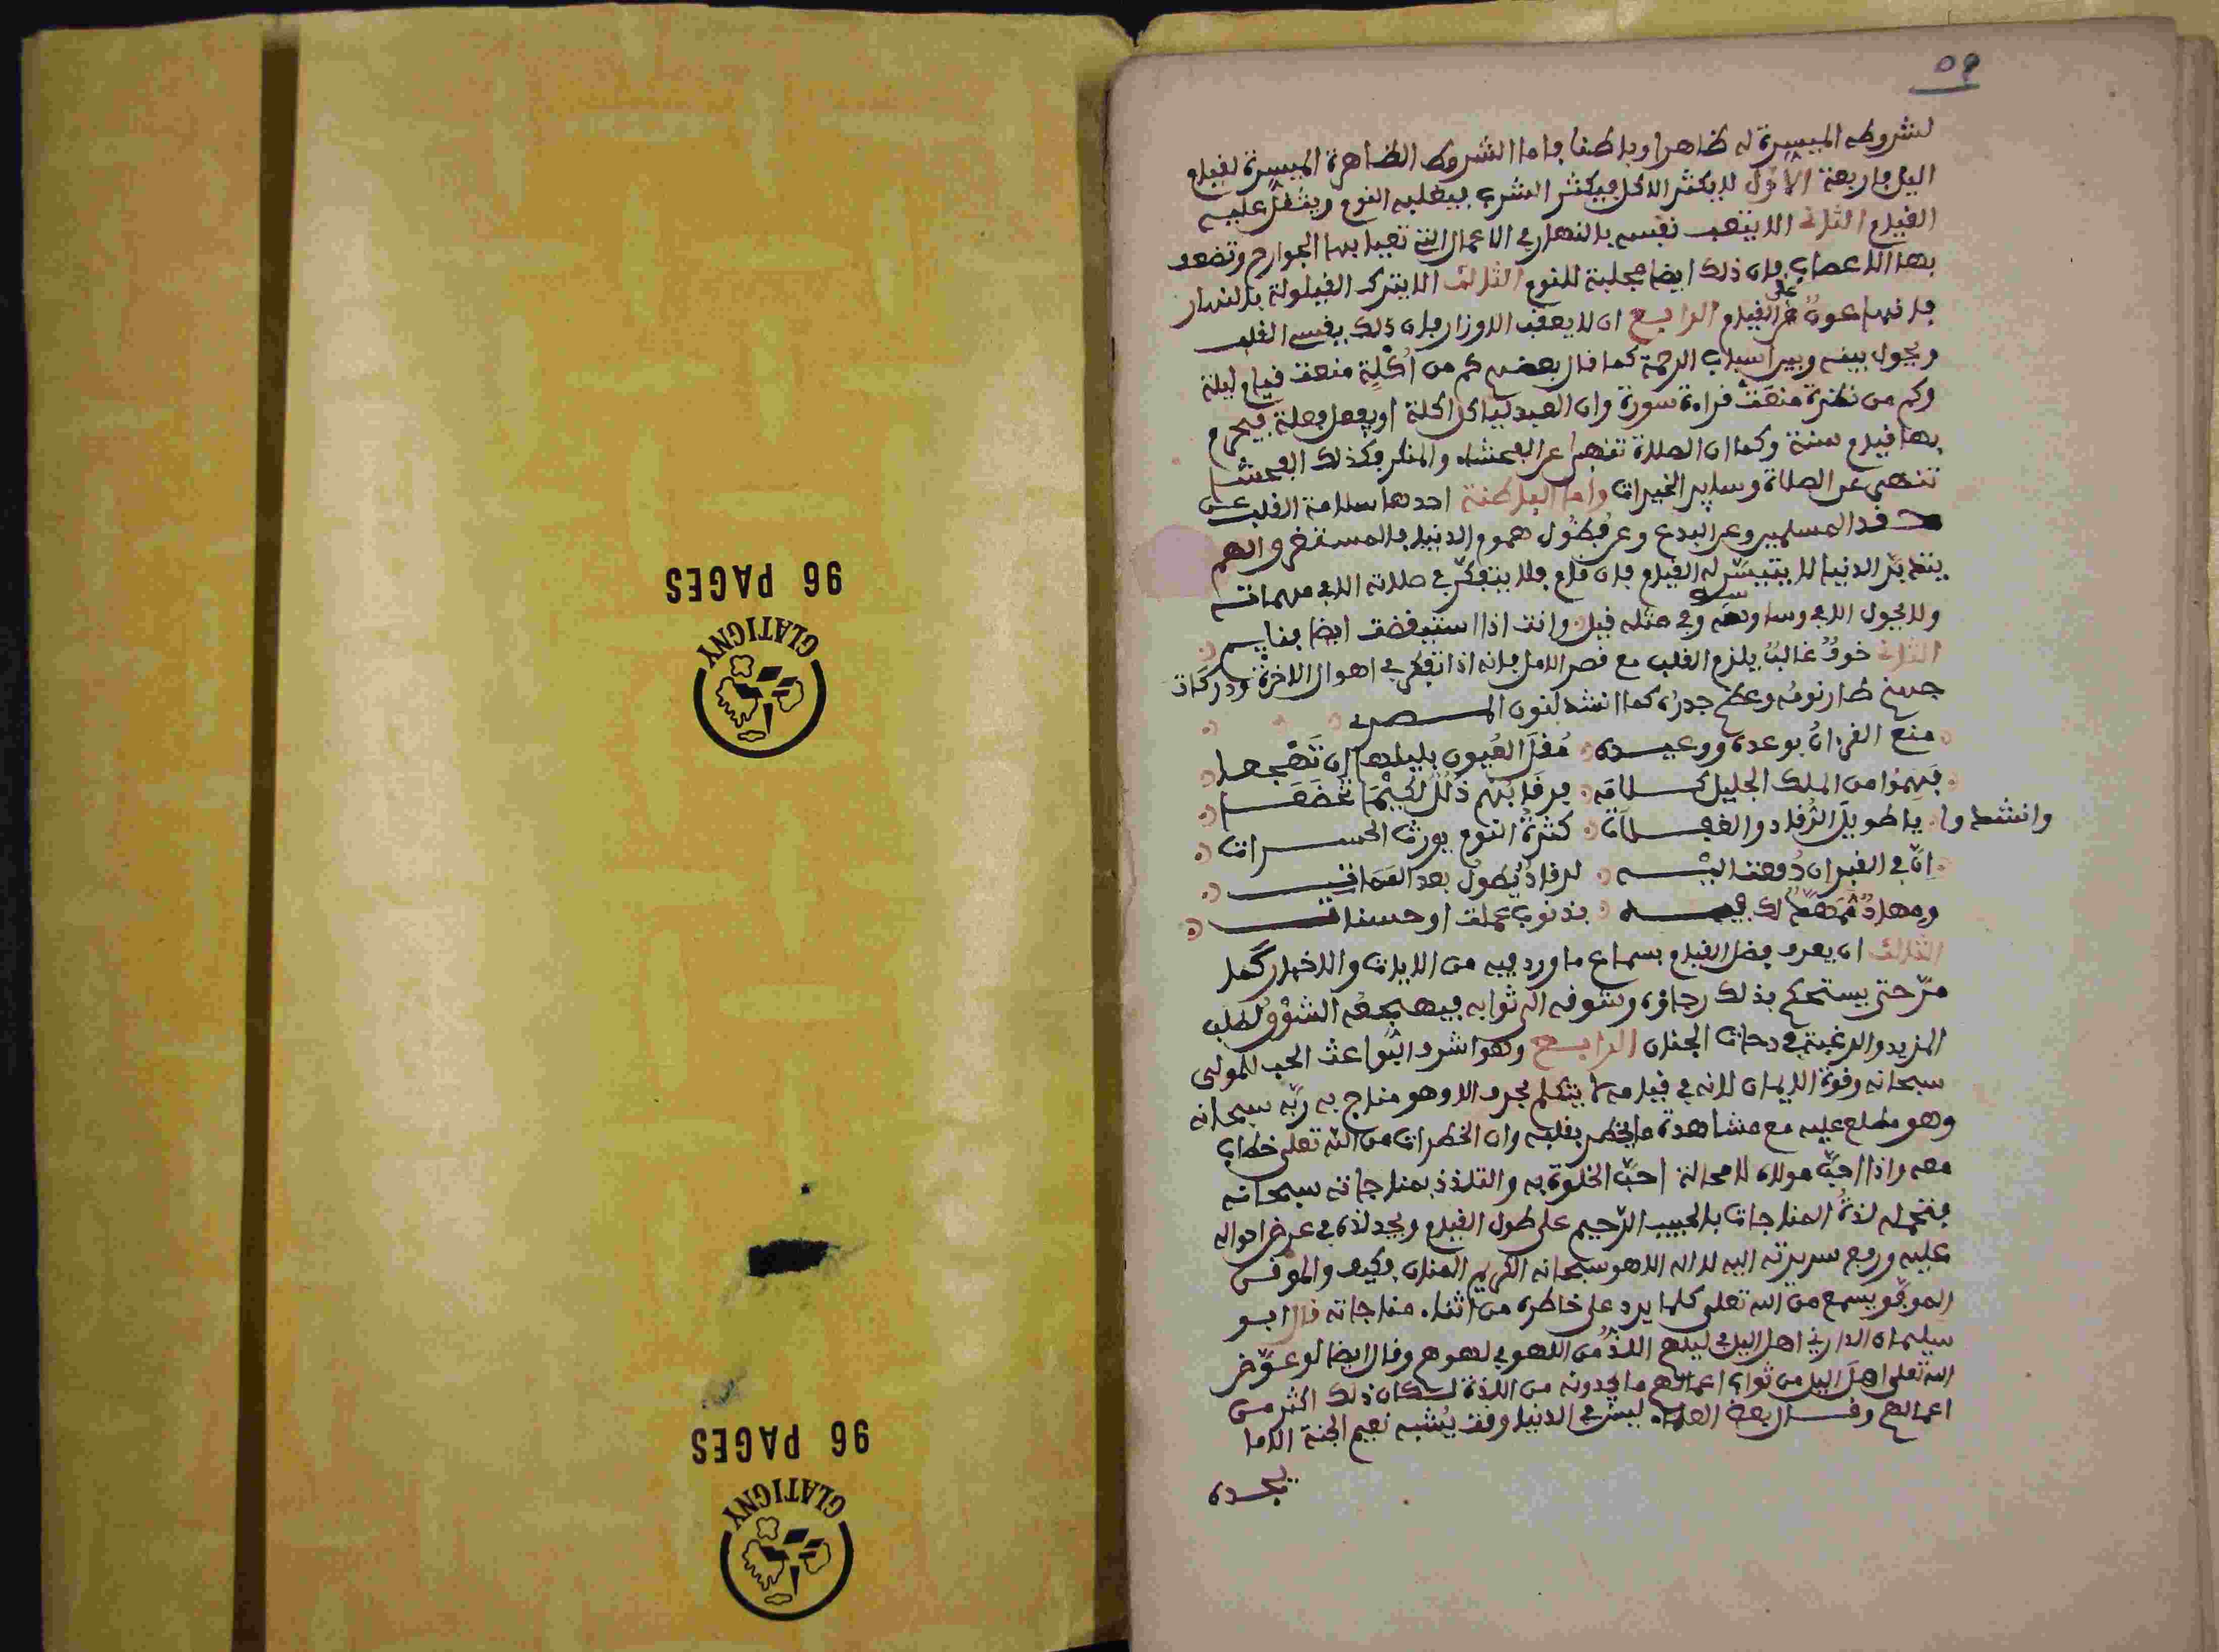 96 PAGES
GLATIGNY
96 PAGES
GLATIGNY
٥٩
لشروطه الميسرة له ظاهرا وباطنا فاما الشروط الظاهرة الميسرة لقيام
اليل فاربعة الأول لا يكثر الاكل فيكثر الشرب فيغلبه النوم ويثقل عليه
القيام الثاني الا يتعب نفسه بالنهار في الاعمال التي تعيا بها الجوارح وتضعف
بها الاعصاب فان ذلك ايضا مجلبة للنوم الثالث الا يترك القيلولة بالنهار
فانها عون على القيام الرابع ان لا يعقب الاوزار فان ذلك يقسي القلب
ويحول بينه وبين اسباب الرحمة كما قال بعضهم كم من أكلة منعت قيام ليلة
وكم من نظرة منعت قراءة سورة وان العبد لياكل اكلة او يفعل فعلة فيحرم
بها قيام سنة وكما ان الصلاة تنهى عن الفحشاء والمنكر فكذلك الفحشا
تنهى عن الصلاة وساير الخيرات واما الباطنة احدها سلامة القلب عن
حقد المسلمين وعن البدع وعن فضول هموم الدنيا فالمستغرق الهم
بتدبير الدنيا لا يتيسر له القيام فان قام فلا يتفكر في صلاته الا في مهماته
ولا يجول الا في وساوسه وفي مثله قيل وانت اذا استيقضت ايضا فنايم
الثاني خوف غالب يلزم القلب مع قصر الامل فانه اذا تفكر في اهوال الاخرة ودركات
جهنم طار نومه وعظم حذره كما انشد لنون المصري
منع القران بوعده ووعيده مقل العيون بليلها ان تهجعا
فهموا من الملك الجليل كلامه فرقابهم ذلت اليه تخضعا
وانشدوا يا طويل الرقاد والغفلات كثرة النوم يورث الحسرات
ان في القبر ان دفعت اليه لرقاد يطول بعد الممات
ومهاد ممهد لك فيه بذنوب عملت او حسنات
الثالث ان يعرف فضل القيام بسماع ما ورد فيه من الايات والاخبار كما
مر حتى يستحكم بذلك رجاؤه وشوقه الى ثوابه فيهيجه الشوق لطلب
المزيد والرغبة في درجات الجنان الرابع وهو اشرف البواعث الحب للمولى
سبحانه وقوة الايمان لانه في قيامه لا يتكلم بحرف الا وهو مناج به ربه سبحانه
وهو مطلع عليه مع مشاهدة ما يخطر بقلبه وان الخطرات من الله تعلى خطاب
معه واذا احب مولاه لا محالة احب الخلوة به والتلذذ بمناجاته سبحانه
فتحمله لذة المناجات بالحبيب الرحيم على طول القيام ويجد لذة في عرض احواله
عليه ورفع سريرته اليه لا اله الا هو سبحانه الكريم المنان فكيف والموفق
الموفق يسمع من الله تعلى كلما يرد على خاطره من اثناء مناجاته قال ابو
سليمان الداراني اهل اليل في ليلهم الذ من اللهو في لهوهم وقال ايضا لو عوض
الله تعلى اهل اليل من ثواب اعمالهم ما يجدونه من اللذة لكان ذلك اكثر من
اعمالهم وقال بعض العلماء ليس في الدنيا وقت يشبه نعيم الجنة الا ما
يجده